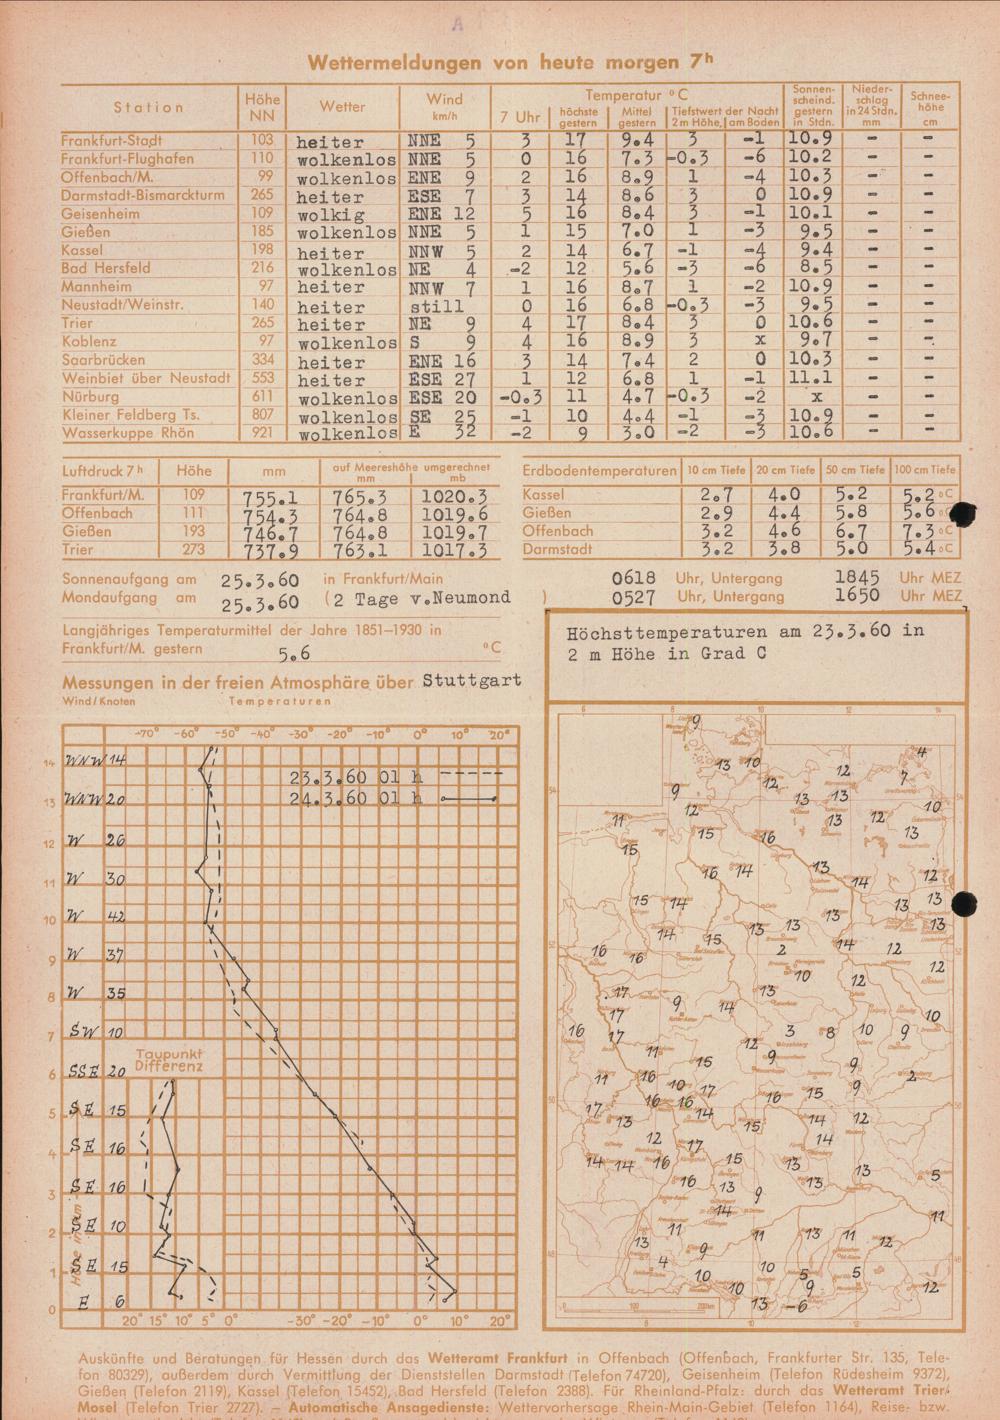 A
Wettermeldungen von heute morgen 7h
Station Höhe NN Wetter Wind km/h Temperatur °C Sonnenscheind. gestern in Stdn. Niederschlag in 24 Stdn. mm Schneehöhe cm
7 Uhr höchste gestern Mittel gestern Tiefstwert der Nacht 2m Höhe, am Boden
Frankfurt-Stadt 103 heiter NNE 5 3 17 9.4 3 -1 10.9 - -
Frankfurt-Flughafen 110 wolkenlos NNE 5 0 16 7.3 -0.3 -6 10.2 - -
Offenbach/M. 99 wolkenlos ENE 9 2 16 8.9 1 -4 10.3 - -
Darmstadt-Bismarckturm 265 heiter ESE 7 3 14 8.6 3 0 10.9 - -
Geisenheim 109 wolkig ENE 12 5 16 8.4 3 -1 10.1 - -
Gießen 185 wolkenlos NNE 5 1 15 7.0 1 -3 9.5 - -
Kassel 198 heiter NNW 5 2 14 6.7 -1 -4 9.4 - -
Bad Hersfeld 216 wolkenlos NE 4 -2 12 5.6 -3 -6 8.5 - -
Mannheim 97 heiter NNW 7 1 16 8.7 1 -2 10.9 - -
Neustadt/Weinstr. 140 heiter still 0 16 6.8 -0.3 -3 9.5 - -
Trier 265 heiter NE 9 4 17 8.4 3 0 10.6 - -
Koblenz 97 wolkenlos S 9 4 16 8.9 3 x 9.7 - -
Saarbrücken 334 heiter ENE 16 3 14 7.4 2 0 10.3 - -
Weinbiet über Neustadt 553 heiter ESE 27 1 12 6.8 1 -1 11.1 - -
Nürburg 611 wolkenlos ESE 20 -0.3 11 4.7 -0.3 -2 x - -
Kleiner Feldberg Ts. 807 wolkenlos SE 25 -1 10 4.4 -1 -3 10.9 - -
Wasserkuppe Rhön 921 wolkenlos E 32 -2 9 3.0 -2 -3 10.6 - -
Luftdruck 7h Höhe mm auf Meereshöhe umgerechnet mm mb
Frankfurt/M. 109 755.1 765.3 1020.3
Offenbach 111 754.3 764.8 1019.6
Gießen 193 746.7 764.8 1019.7
Trier 273 737.9 763.1 1017.3
Erdbodentemperaturen 10 cm Tiefe 20 cm Tiefe 50 cm Tiefe 100 cm Tiefe
Kassel 2.7 4.0 5.2 5.2 °C
Gießen 2.9 4.4 5.8 5.6 °C
Offenbach 3.2 4.6 6.7 7.3 °C
Darmstadt 3.2 3.8 5.0 5.4 °C
Sonnenaufgang am 25.3.60 in Frankfurt/Main 0618 Uhr, Untergang 1845 Uhr MEZ
Mondaufgang am 25.3.60 (2 Tage v.Neumond ) 0527 Uhr, Untergang 1650 Uhr MEZ
Langjähriges Temperaturmittel der Jahre 1851–1930 in
Frankfurt/M. gestern 5.6 °C
Messungen in der freien Atmosphäre über Stuttgart
Wind/Knoten Temperaturen
-70° -60° -50° -40° -30° -20° -10° 0° 10° 20°
14 WNW 14
23.3.60 01 h
24.3.60 01 h
13 WNW 20
12 W 26
11 W 30
10 W 42
9 W 37
8 W 35
7 SW 10
Taupunkt
Differenz
6 SSE 20
5 SE 15
4 SE 16
3 SE 16
2 SE 10
1 SE 15
0 E 6
Höhe in km
20° 15° 10° 5° 0° -30° -20° -10° 0° 10° 20°
Höchsttemperaturen am 23.3.60 in
2 m Höhe in Grad C
6 8 10 12 14
9
13 10 12 4
12 7
9 13 13 10
12
11 15 16 13 12 13
15
16 14 13 14 12
15 14 13 13 13
14 15 13 13 14 12 13
16 16 2 12
10 12
17 9 14 13
17 10
16 17 12 3 8 10 9
11 15 9 9
11 16 10 17 2
16 16 16 15 9
17 13 14 15 14 12
12 17 14
14 14 16 15 13 13 5
16 13 9
14 11
13 11 9 11 13 12
4 10 10 5 5
10 9 12
13 -6
0 100 200km
Auskünfte und Beratungen für Hessen durch das Wetteramt Frankfurt in Offenbach (Offenbach, Frankfurter Str. 135, Tele-
fon 80329), außerdem durch Vermittlung der Dienststellen Darmstadt (Telefon 74720), Geisenheim (Telefon Rüdesheim 9372),
Gießen (Telefon 2119), Kassel (Telefon 15452), Bad Hersfeld (Telefon 2388). Für Rheinland-Pfalz: durch das Wetteramt Trier/
Mosel (Telefon Trier 2727). – Automatische Ansagedienste: Wettervorhersage Rhein-Main-Gebiet (Telefon 1164), Reise- bzw.